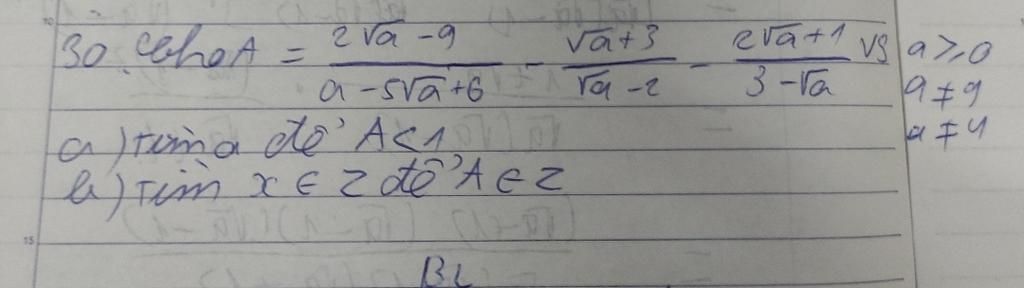 30. Cho A = \frac{2\sqrt{a} - 9}{a - 5\sqrt{a} + 6} - \frac{\sqrt{a} + 3}{\sqrt{a} - 2} - \frac{2\sqrt{a} + 1}{3 - \sqrt{a}} vs a ≥ 0
a ≠ 9
a ≠ 4
a) tìm a để A < 1
b) tìm x ∈ Z để A ∈ Z
BL
10
15